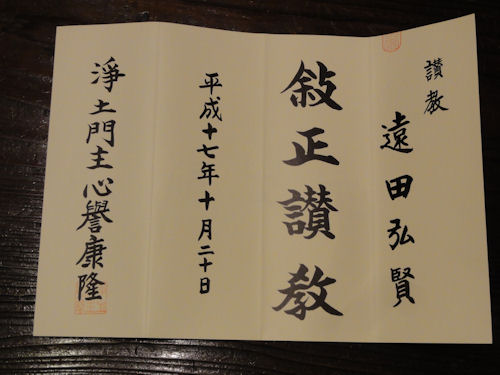 讃教
遠田弘賢
敍正讃教
平成十七年十月二十日
淨土門主心譽康隆